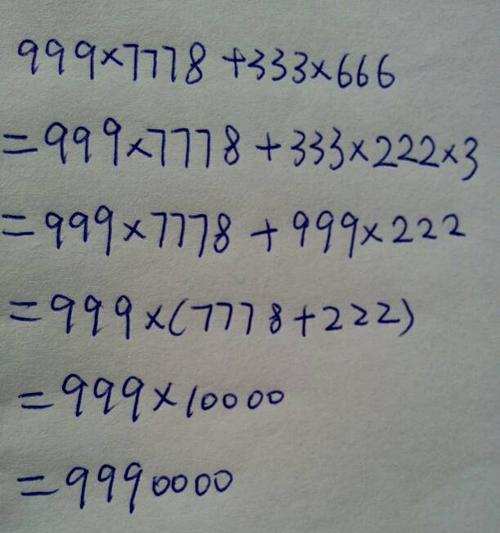 999×7778+333×666
=999×7778+333×222×3
=999×7778+999×222
=999×(7778+222)
=999×10000
=9990000